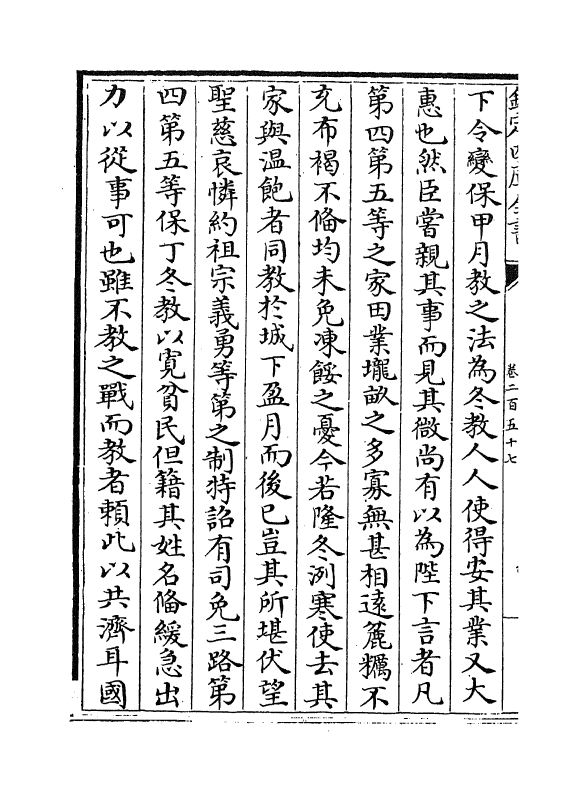 欽定四庫全書
卷二百五十七
下令變保甲月教之法為冬教人人使得安其業又大
惠也然臣嘗親其事而見其微尚有以為陛下言者凡
第四第五等之家田業壠畝之多寡無甚相遠麄糲不
充布褐不備均未免凍餒之憂今若隆冬冽寒使去其
家與温飽者同教於城下盈月而後已豈其所堪伏望
聖慈哀憐約祖宗義勇等第之制特詔有司免三路第
四第五等保丁冬教以寛貧民但籍其姓名備緩急出
力以從事可也雖不教之戰而教者頼此以共濟耳國